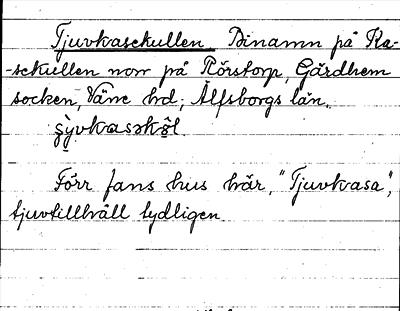 Tjuvkasekullen Binamn på Ka-
-sekullen norr på Rörstorp, Gärdhem
socken, Väne hd; Älfsborgs län.
Förr fans hus här, "Tjuvkasa",
tjuvtillhåll tydligen.